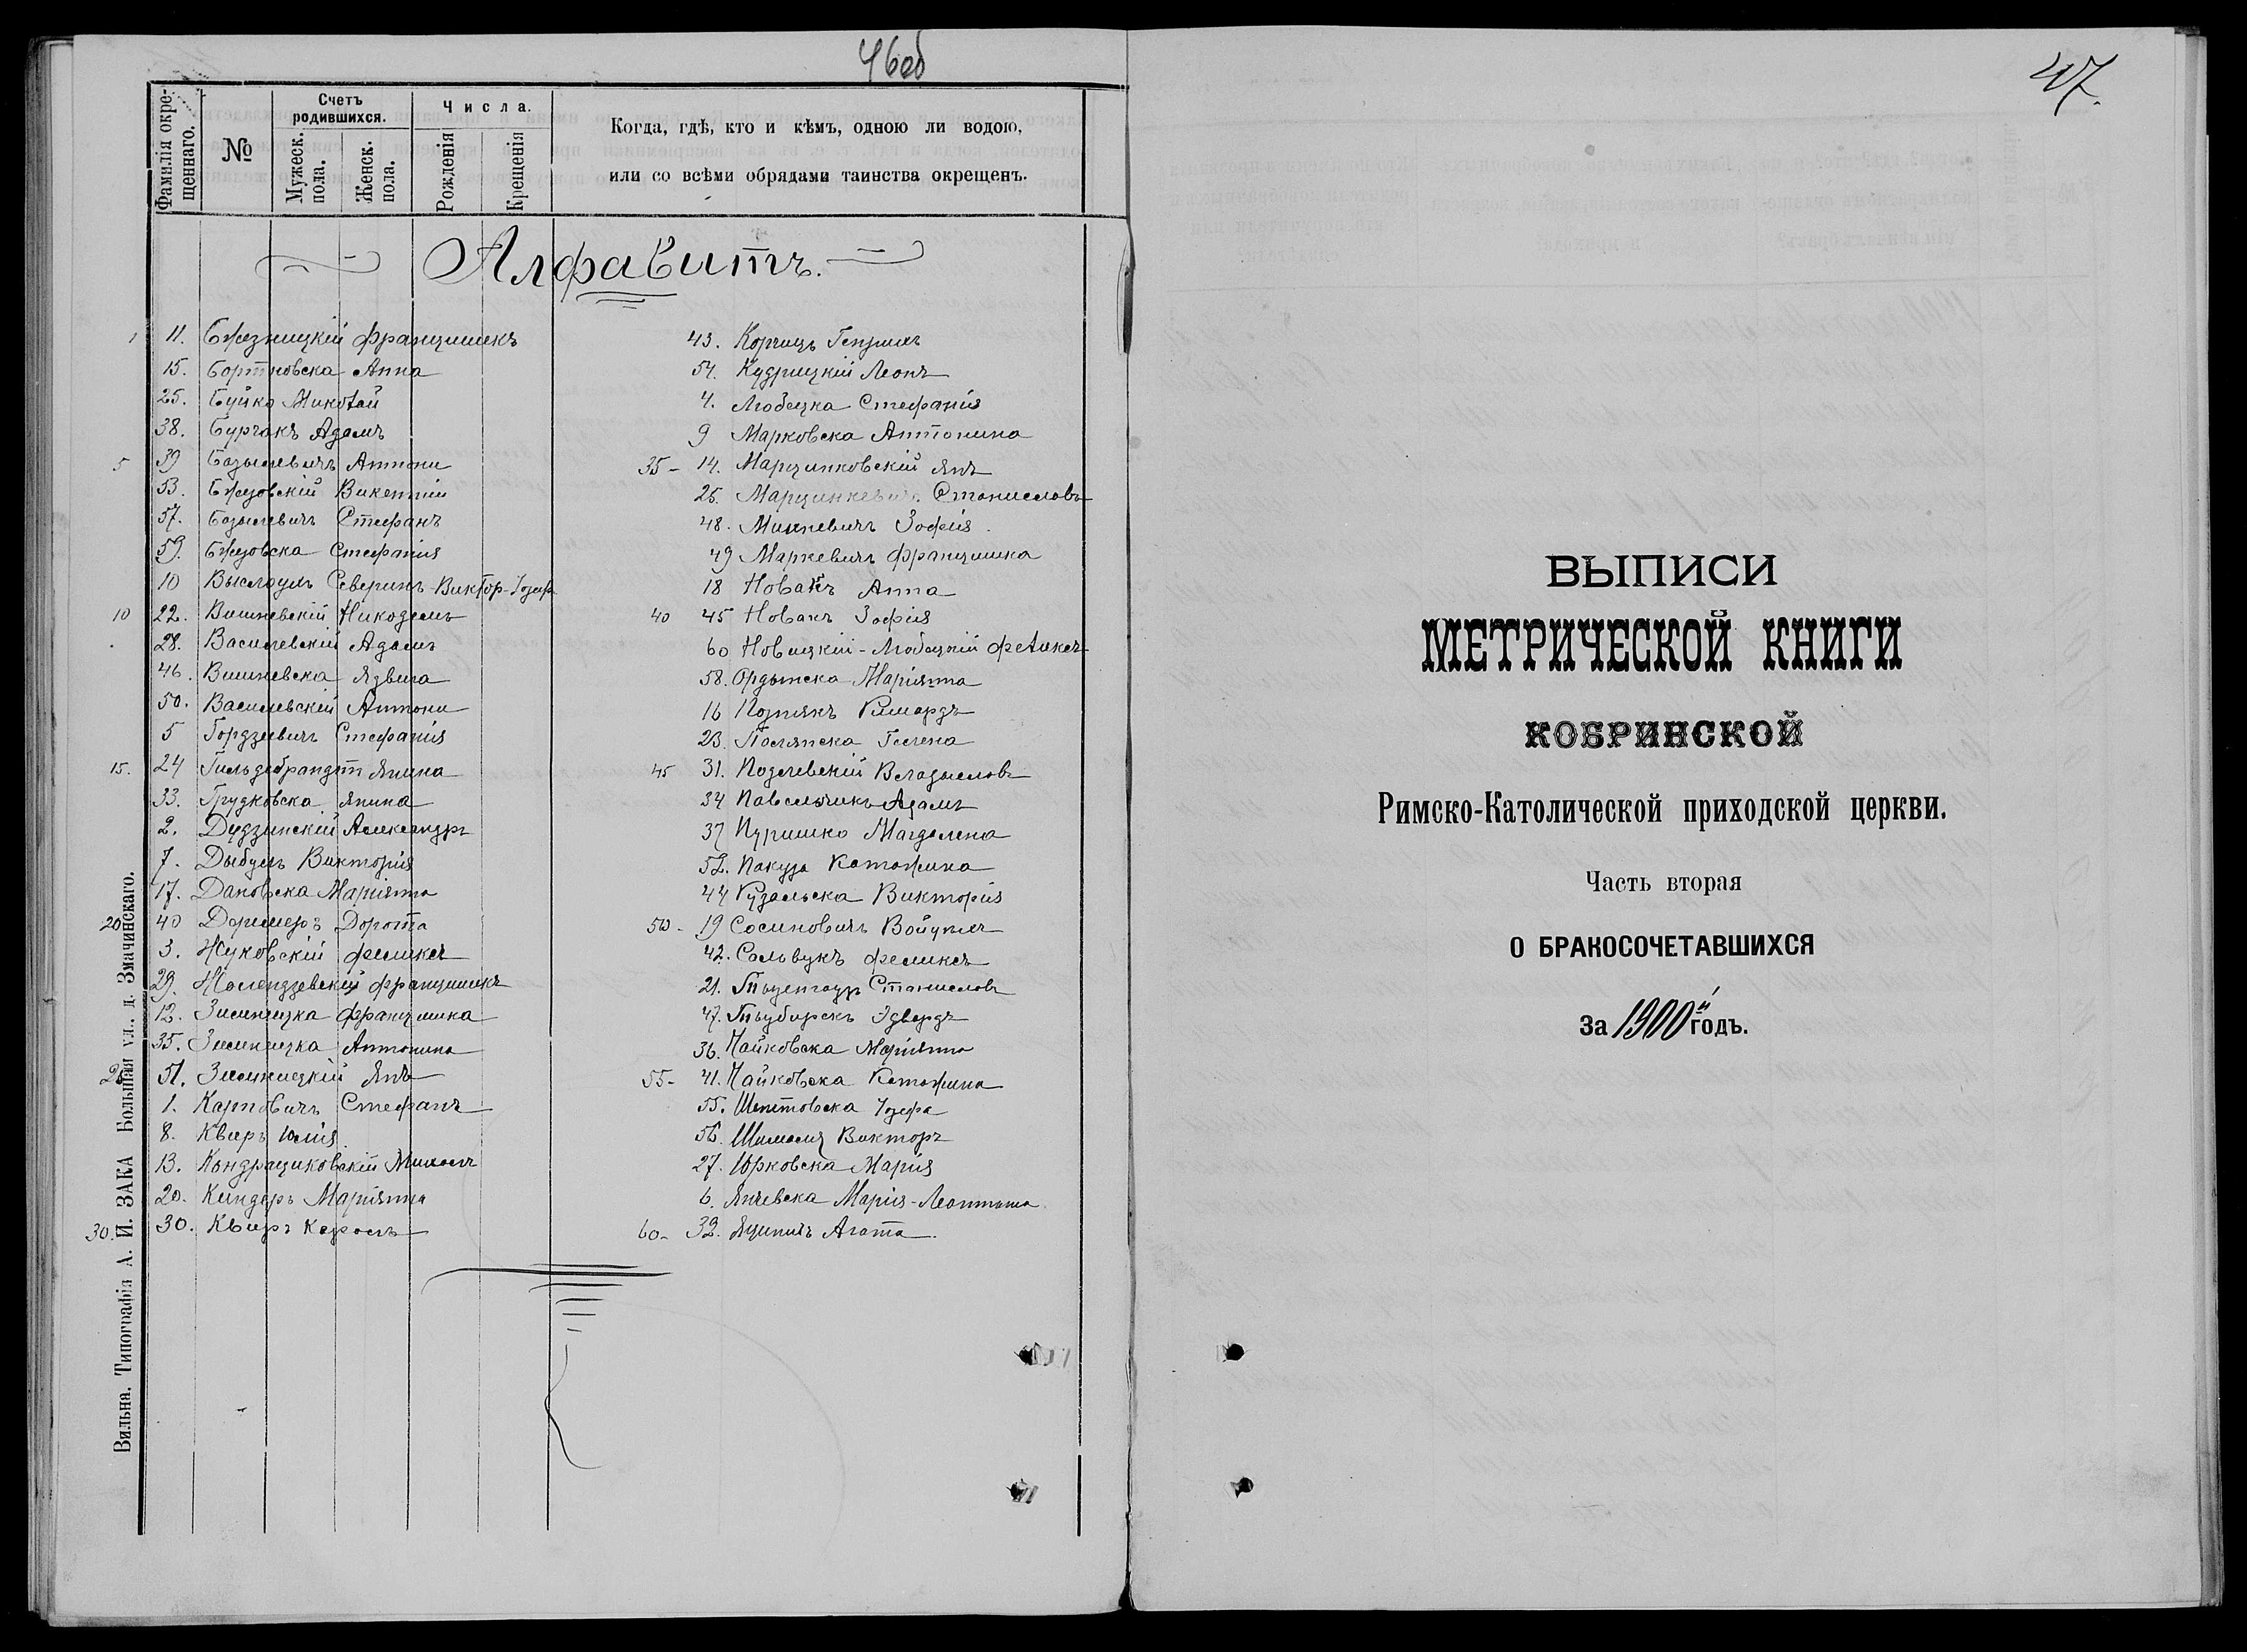 46об
Фамилія окрещеннаго.
№
Счетъ родившихся.
Мужеск. пола.
Женск. пола.
Числа.
Рожденія
Крещенія
Когда, гдѣ, кто и кѣмъ, одною ли водою,
или со всѣми обрядами таинства окрещенъ.
Алфавитъ.
1 11. Бжезницкій Францишекъ
15. Бортновска Анна
25. Буйко Миколай
38. Бурчакъ Адамъ
5 39 Базылевичъ Антони
53. Бжозовскій Викентій
57. Базылевичъ Стефанъ
59. Бжозовска Стефанія
10 Выслоухъ Северинъ-Викторъ-Іозефъ
10 22. Вишневскій Никодемъ
28. Василевскій Адамъ
46. Вишневска Ядвига
50. Василевскій Антони
5 Гордзеевичъ Стефанія
15. 24 Гильдебрандтъ Янина
33. Грудковска Янина
2. Дудзинскій Александръ
7. Дыбуль Викторія
17. Дановска Маріянна
20 40 Дормеръ Дорота
3. Жуковскій Феликсъ
29. Жолендзевскій Францишекъ
12. Зилиницка Францишка
35. Зилиницка Антонина
25 51. Зилиницкій Янъ
1. Карповичъ Стефанъ
8. Квиръ Юлія
13. Кондрациковскій Михалъ
20. Киндеръ Маріянна
30. 30. Квиръ Кароль
43. Корчицъ Генрихъ
54. Кудрицкій Леонъ
4. Любецка Стефанія
9 Марковска Антонина
35- 14. Марцинковскій Янъ
26. Марцинкевичъ Станиславъ
48. Милкевичъ Зофія
49 Маркевичъ Францишка
18 Новакъ Анна
40 45 Новакъ Зофія
60 Новицкій-Любецкій Феликсъ
58. Ордынска Маріянна
16 Познякъ Рышардъ
23. Полянска Гелена
45 31. Подлевскій Владыславъ
34 Павельчикъ Адамъ
37 Куришко Магдалена
52. Пакуза Катажина
44 Рудальска Викторія
50- 19 Сосиновичъ Войцехъ
42. Сальвукъ Феликсъ
21. Станиславъ
47. Эдвардъ
36. Чайковска Маріянна
55- 41. Чайковска Катажина
55. Шептовска Іозефа
56. Викторъ
27. Юрковска Марія
6. Янчевска Марія-Леонтына
60- 32. Яцыничъ Агата
Вильна. Типографія А. И. ЗАКА Большая ул., д. Змачинскаго.
47.
ВЫПИСИ
МЕТРИЧЕСКОЙ КНИГИ
КОБРИНСКОЙ
Римско-Католической приходской церкви.
Часть вторая
О БРАКОСОЧЕТАВШИХСЯ
За 1900й годъ.